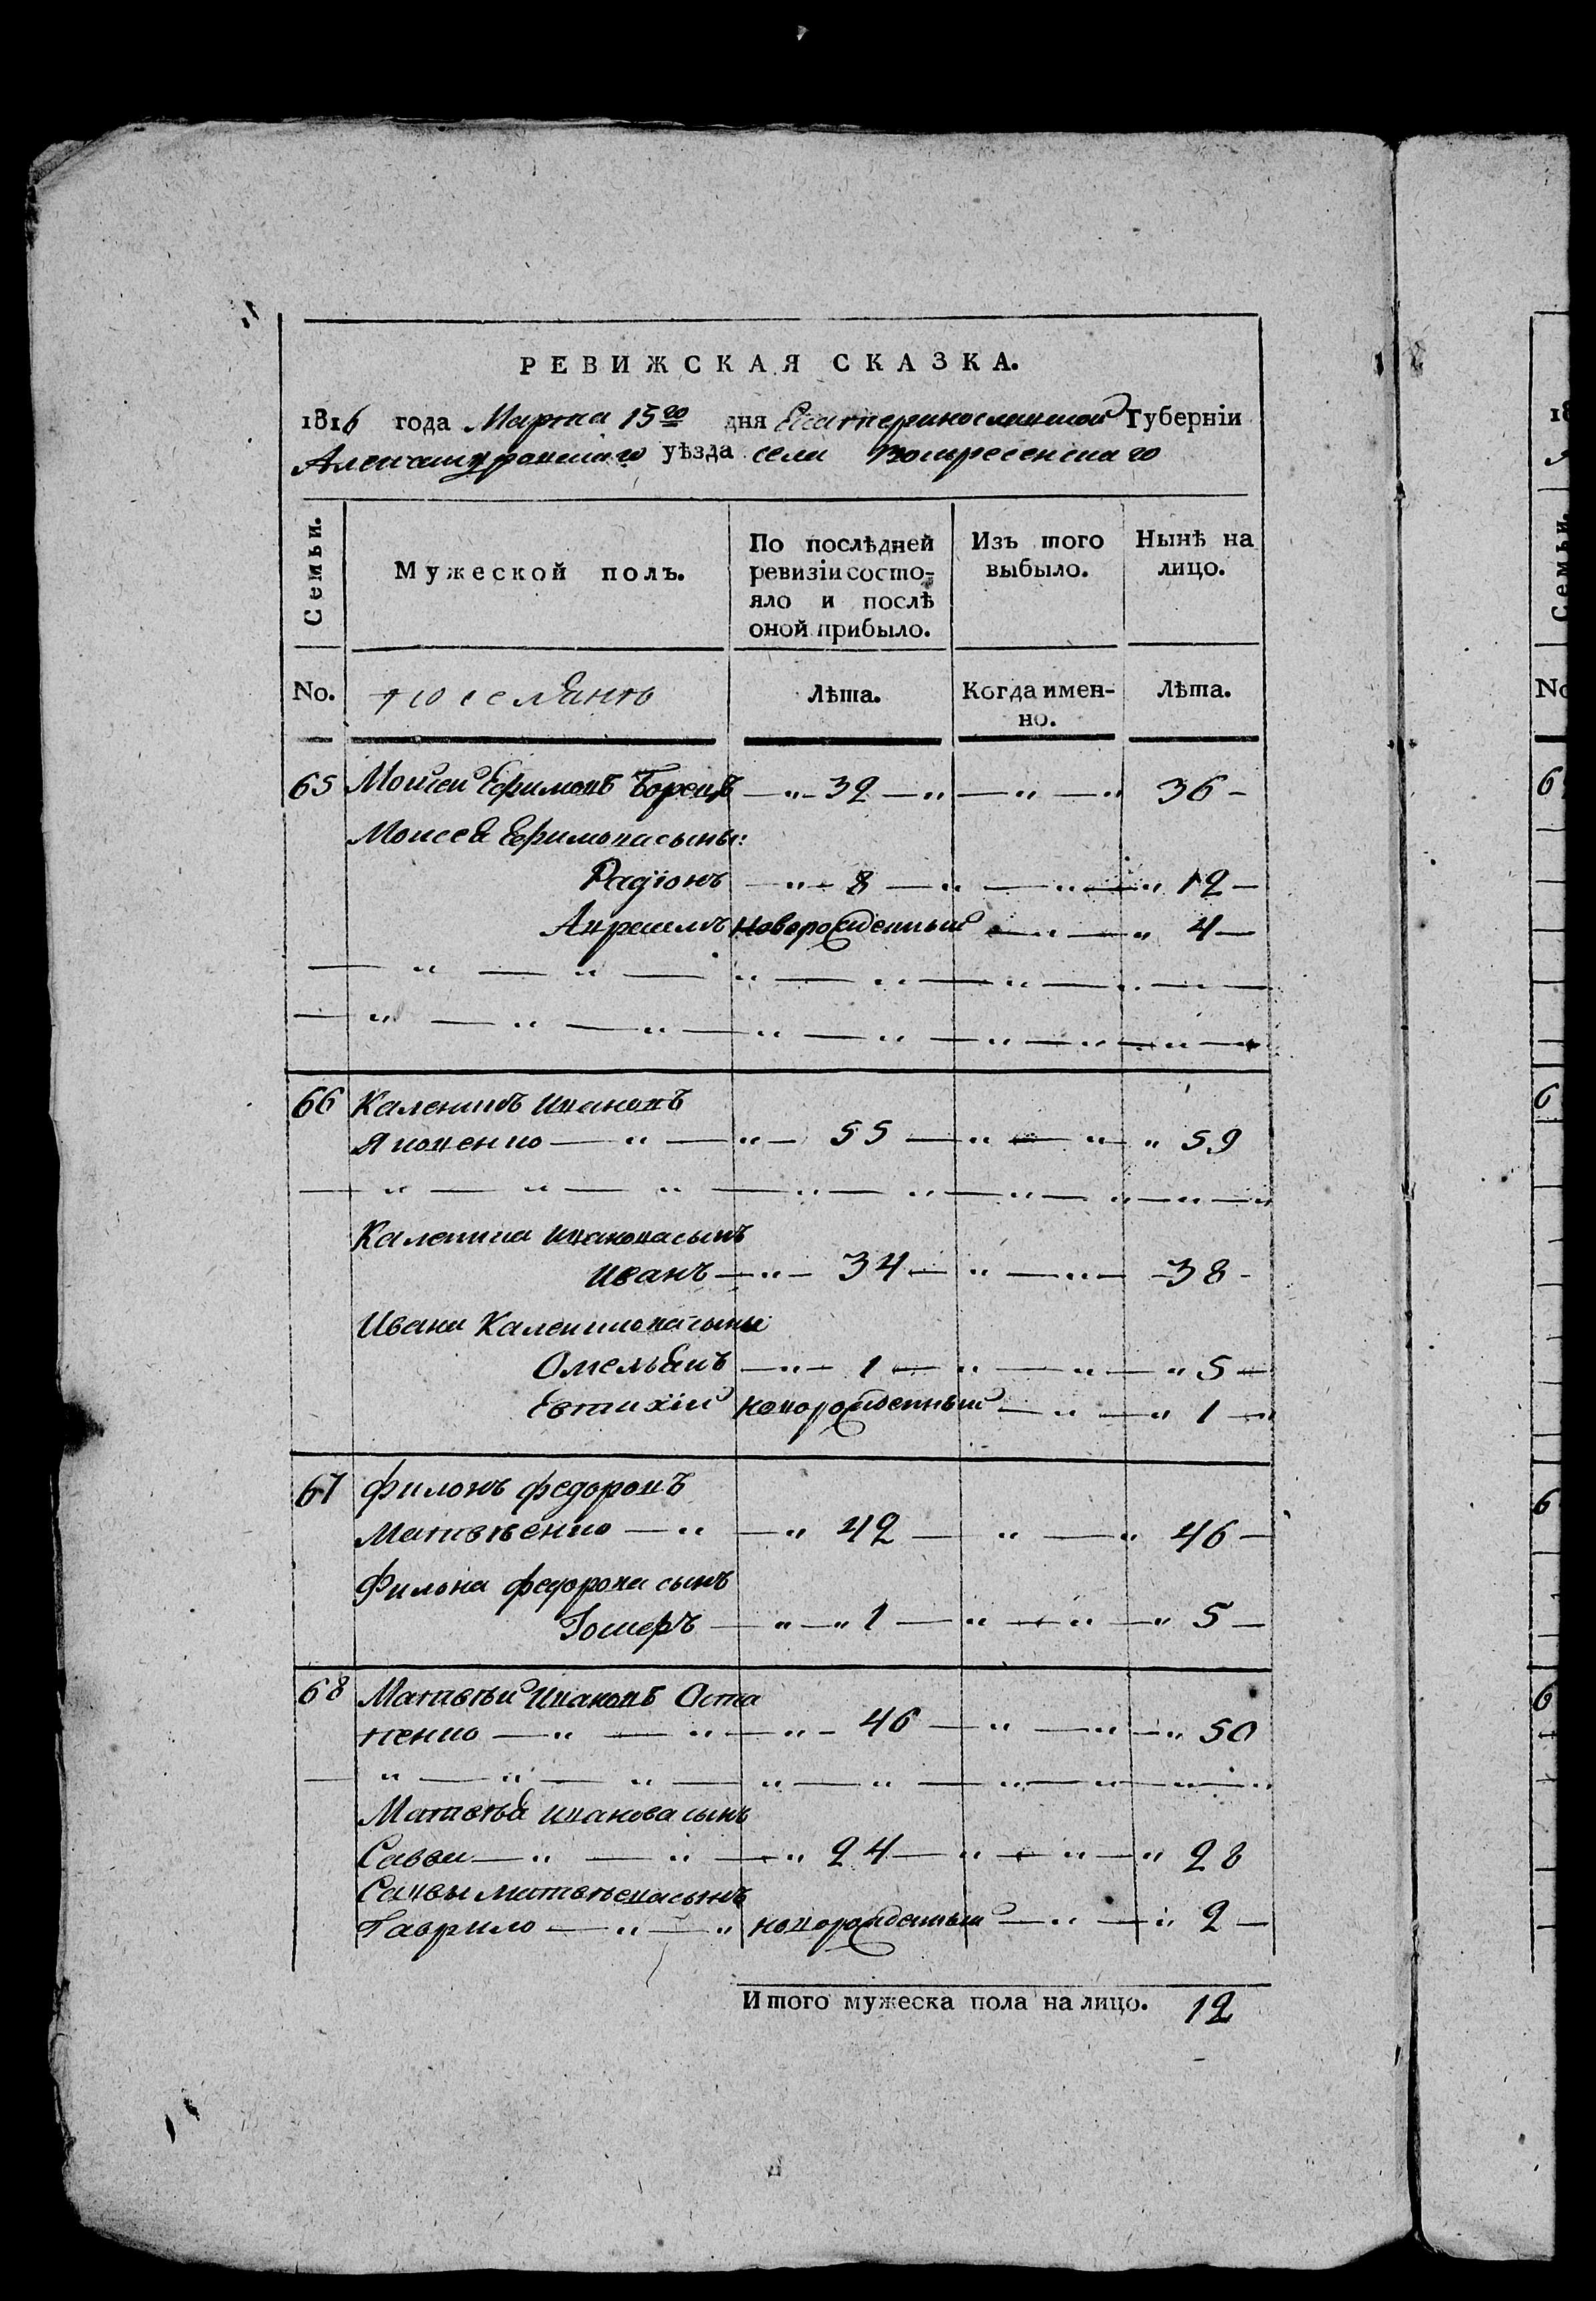 РЕВИЖСКАЯ СКАЗКА.
1816 года Марта 15го дня Екатеринославской Губерніи
Александровскаго уѣзда села Воскресенскаго
Семьи.
Мужеской полъ.
По послѣдней ревизіи состояло и послѣ оной прибыло.
Изъ того выбыло.
Нынѣ на лицо.
No. поселянъ Лѣта. Когда именно. Лѣта.
65 Моисей Ефимовъ Борецъ 32 36
Моисея Ефимова сыны:
Радіонъ 8 12
Новорожденный 4
66 Каленикъ Ивановъ
Яковенко 55 59
Каленика Иванова сынъ
Иванъ 34 38
Ивана Каленикова сыны
Омельянъ 1 5
Евтихій новорожденный 1
67 Филонъ Федоровъ
Матвѣенко 42 46
Филона Федорова сынъ
5
68 Матвѣй Ивановъ Оста
пенко 46 50
Матвѣя Иванова сынъ
Савва 24 28
Саввы Матвѣева сынъ
Гаврило новорожденный 2
Итого мужеска пола на лицо. 12